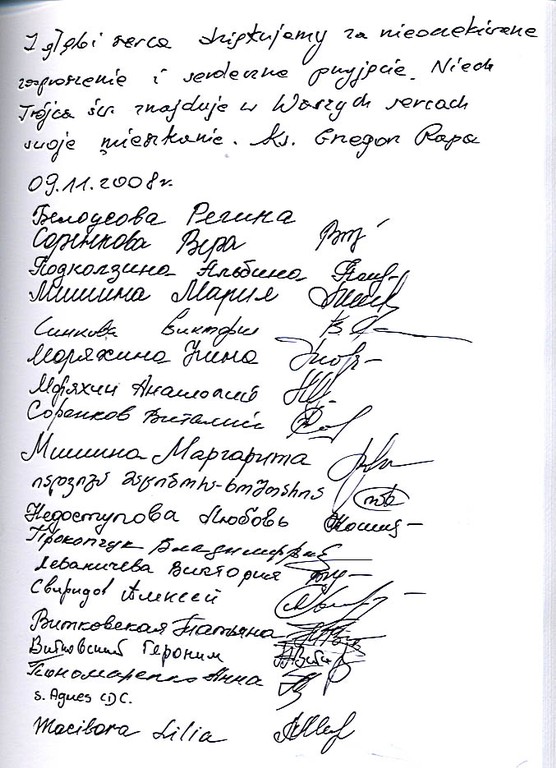 Z głębi serca dziękujemy za nieoczekiwane
zaproszenie i serdeczne przyjęcie. Niech
Trójca św. znajduje w Waszych sercach
swoje mieszkanie. ks. Gregor Rapa
09.11.2008r.
Белоусова Регина
Соренкова Вера
Подколзина Альбина
Мишина Мария
Синкова Виктория
Моряхина Нина
Моряхин Анатолий
Соренков Виталий
Мишина Маргарита
Недоступова Любовь
Прокопчук Владимир
Леваничева Виктория
Свиридов Алексей
Витковская Татьяна
Витковский Героним
Пономаренко Анна
s. Agnes CDC.
Macibora Lilia